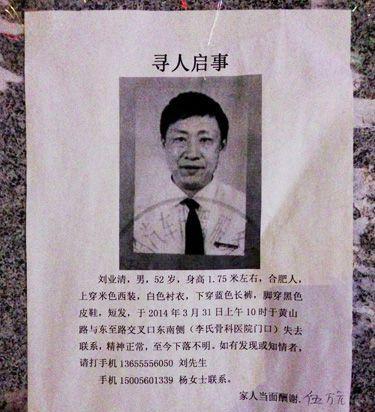 寻人启事
刘业清，男，52岁，身高1.75米左右，合肥人，
上穿米色西装，白色衬衣，下穿蓝色长裤，脚穿黑色
皮鞋，短发，于2014年3月31日上午10时于黄山
路与东至路交叉口东南侧（李氏骨科医院门口）失去
联系，精神正常，至今下落不明。如有发现或知情者，
请打手机13655556050 刘先生
手机15005601339 杨女士联系。
家人当面酬谢.伍万元